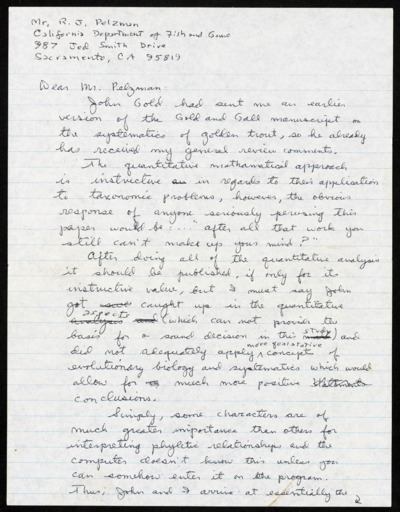 Mr. R. J. Pelzman
California Department of Fish and Game
987 Jed Smith Drive
Sacramento, CA 95819
Dear Mr. Pelzman:
John Gold had sent me an earlier
version of the Gold and Gall manuscript on
the systematics of golden trout, so he already
has received my general review comments.
The quantitative mathamatical approach
is instructive in regards to their application
to taxonomic problems, however, the obvious
response of anyone seriously perusing this
paper would be: "... after all that work you
still can't make up your mind?"
After doing all of the quantitative analysis
it should be published, if only for its
instructive value, but I must say John
got caught up in the quantitative
aspects
(which can not provide the
basis for a sound decision in this study) and
more qualitative
did not adequately apply concepts of
evolutionary biology and systematics which would
allow for much more positive
conclusions.
Simply, some characters are of
much greater importance than others for
interpreting phyletic relationships and the
computer doesn't know this unless you
can somehow enter it on the program.
Thus, John and I arrive at essentially the
2